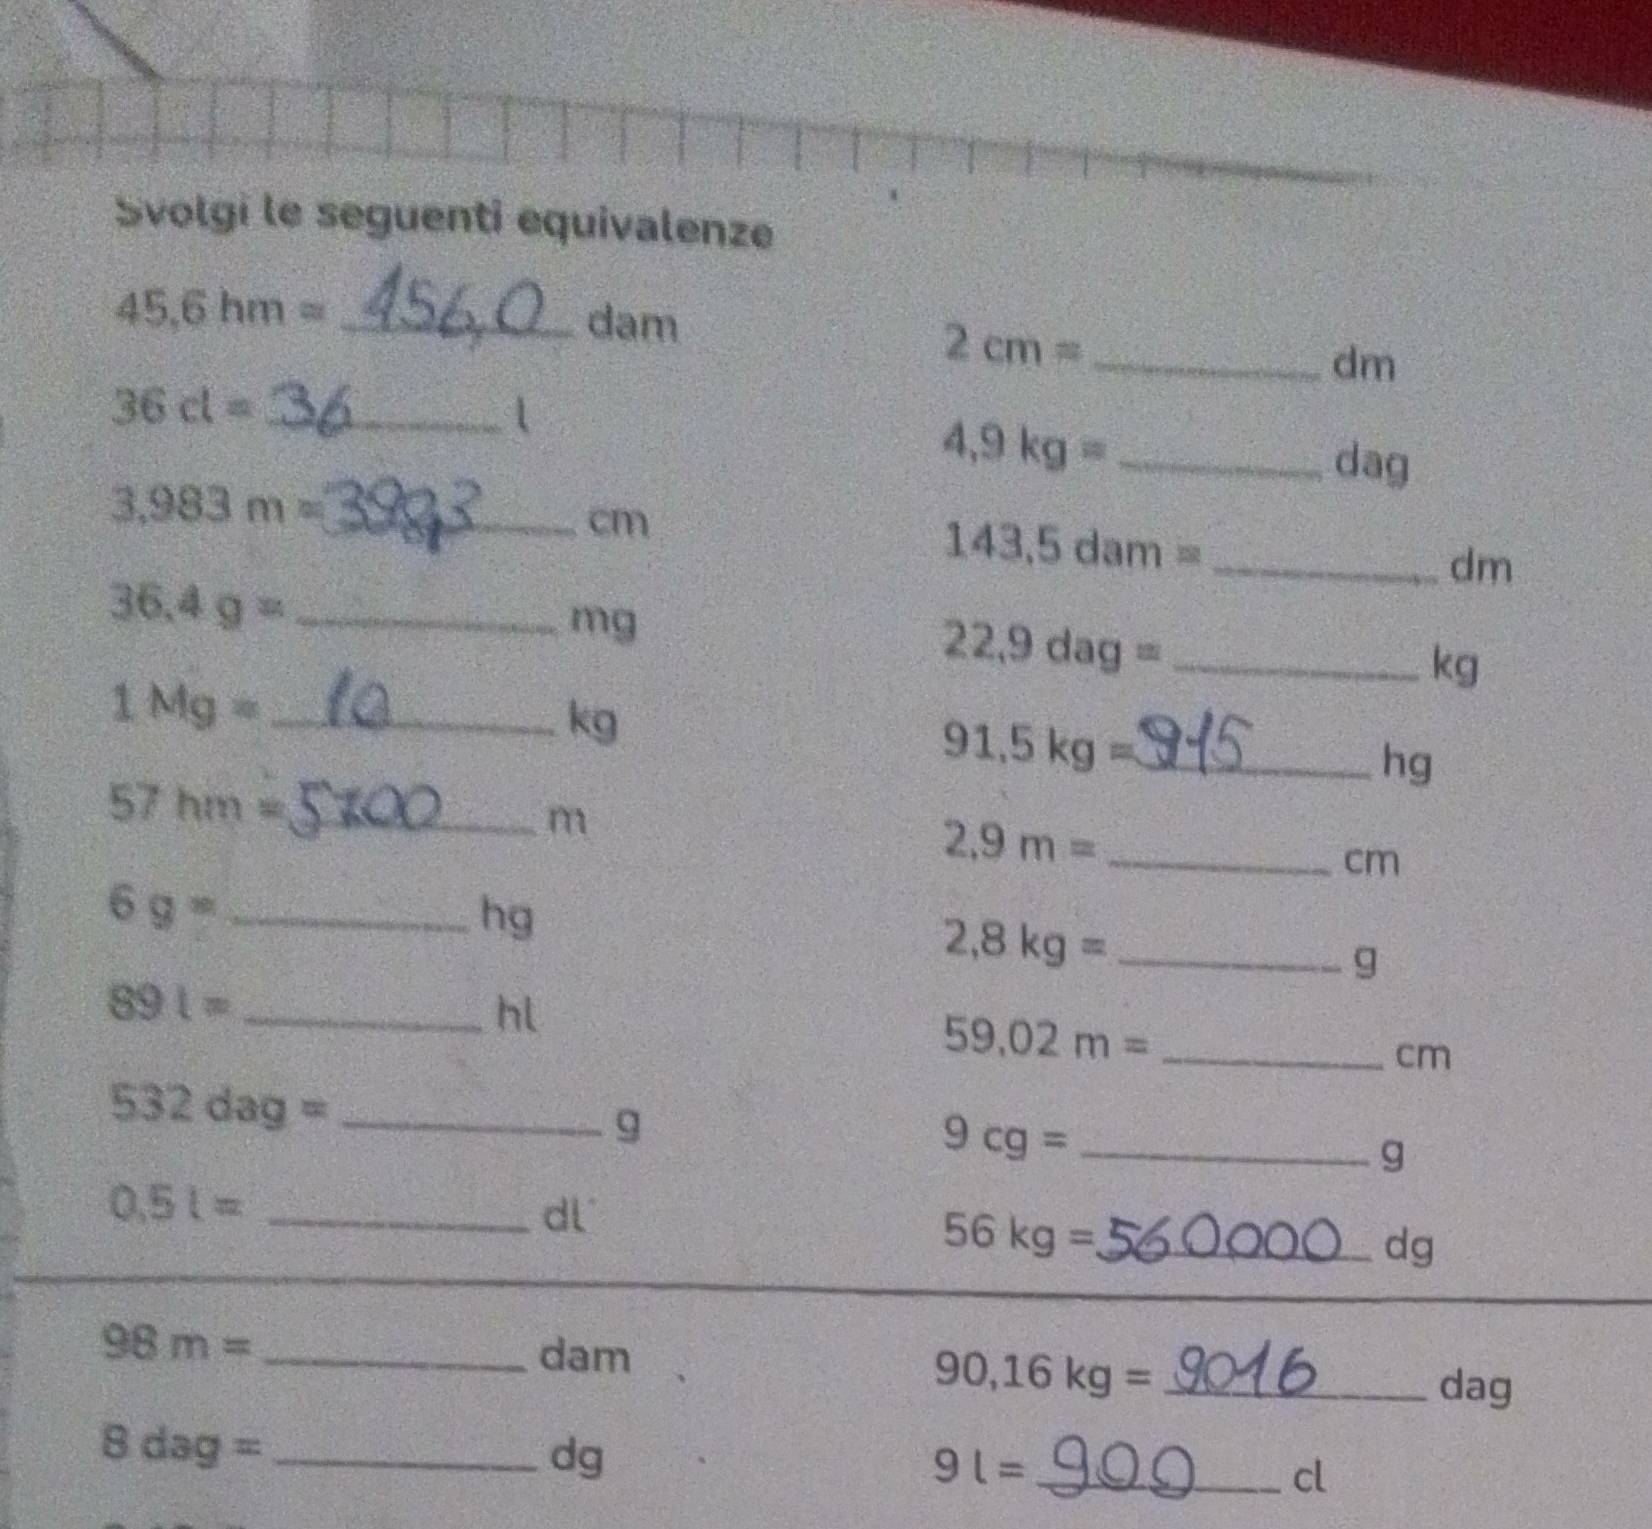 Svolgi le seguenti equivalenze
45,6 hm = 456,0 dam
36 cl = 36 l
3,983 m = 398,3 cm
36,4 g = ____ mg
1 Mg = 10 kg
57 hm = 5700 m
6 g = ____ hg
89 l = ____ hl
532 dag = ____ g
0,5 l = ____ dl
98 m = ____ dam
8 dag = ____ dg
2 cm = ____ dm
4,9 kg = ____ dag
143,5 dam = ____ dm
22,9 dag = ____ kg
91,5 kg = 915 hg
2,9 m = ____ cm
2,8 kg = ____ g
59,02 m = ____ cm
9 cg = ____ g
56 kg = 560000 dg
90,16 kg = 9016 dag
9 l = 900 cl